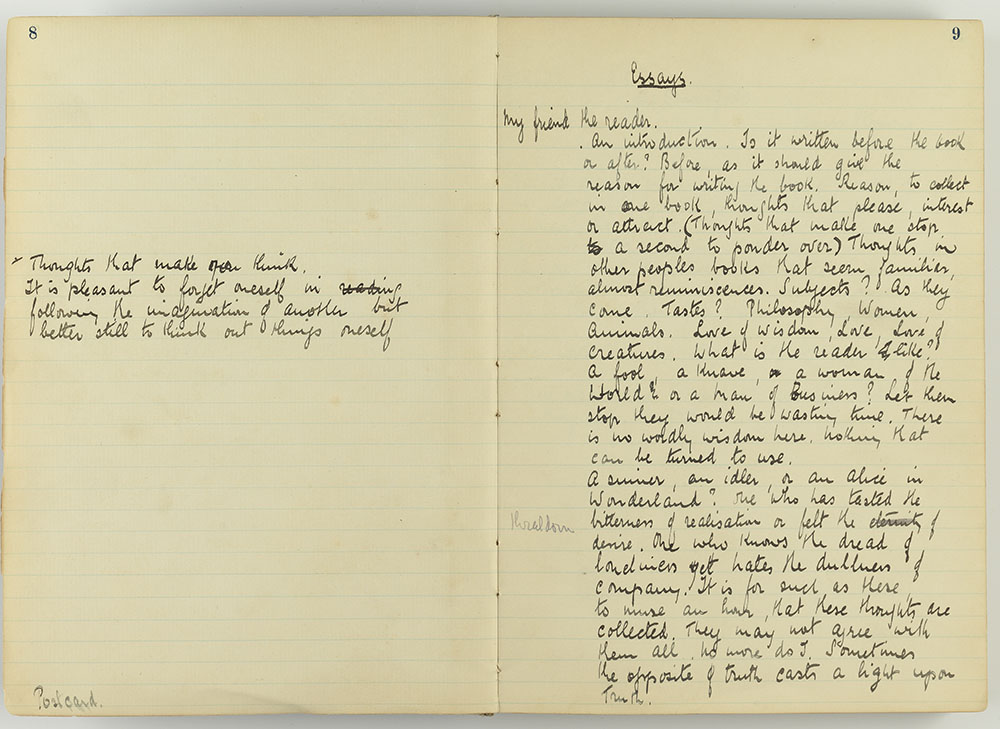 8
× Thoughts that make you think.
It is pleasant to forget oneself in reading
following the imagination of another but
better still to think out things oneself
Postcard.
9
Essays.
My friend the reader.
. An introduction. Is it written before the book
or after? Before, as it should give the
reason for writing the book. Reason, to collect
in one book, thoughts that please, interest
or attract. (Thoughts that make one stop
to a second to ponder over) Thoughts in
other peoples books that seem familiar,
almost reminiscences. Subjects? As they
come. Tastes? Philosophy, Women,
Animals. Love of wisdom, Love, Love of
creatures. What is the reader like?
A fool, a knave, or a woman of the
World? or a man of Business? Let them
stop they would be wasting time. There
is no woldly wisdom here. Nothing that
can be turned to use.
A sinner, an idler, or an alice in
Wonderland? One who has tasted the
thraldom
bitterness of realisation or felt the eternity of
desire. One who knows the dread of
loneliness yet hates the dullness of
company. It is for such as these,
to muse an hour, that these thoughts are
collected. They may not agree with
them all. No more do I. Sometimes
the opposite of truth casts a light upon
Truth.